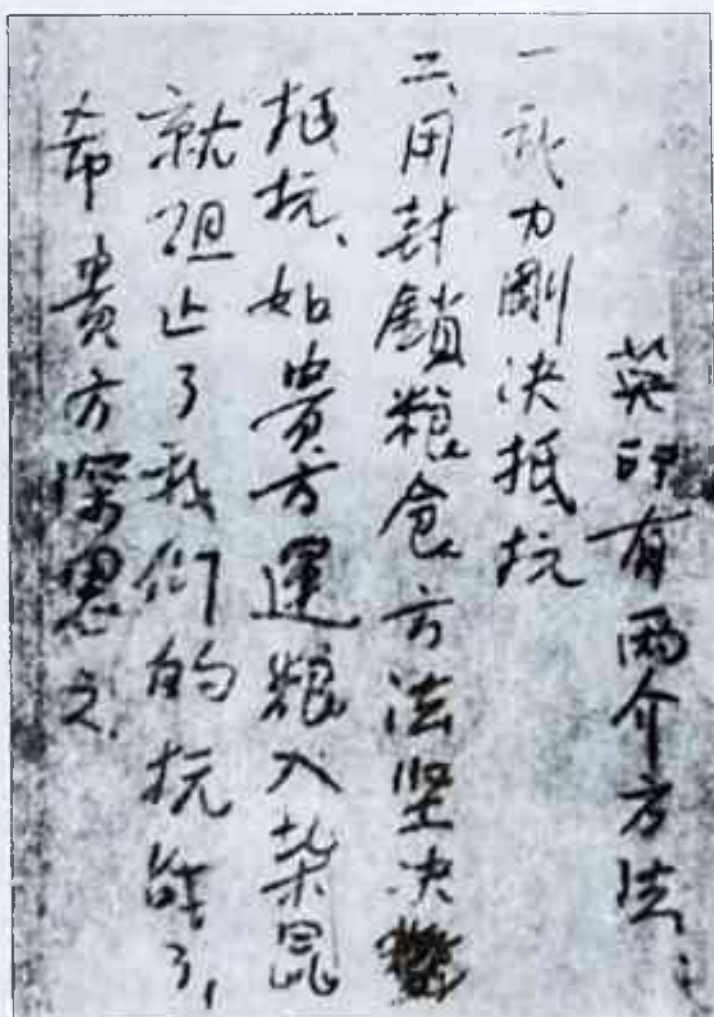 英印有两个方法、
一武力剛决抵抗
二、用封鎖粮食方法坚决
抵抗、如貴方運粮入柴昆
就阻止了我们的抗战了,
希貴方深思之.